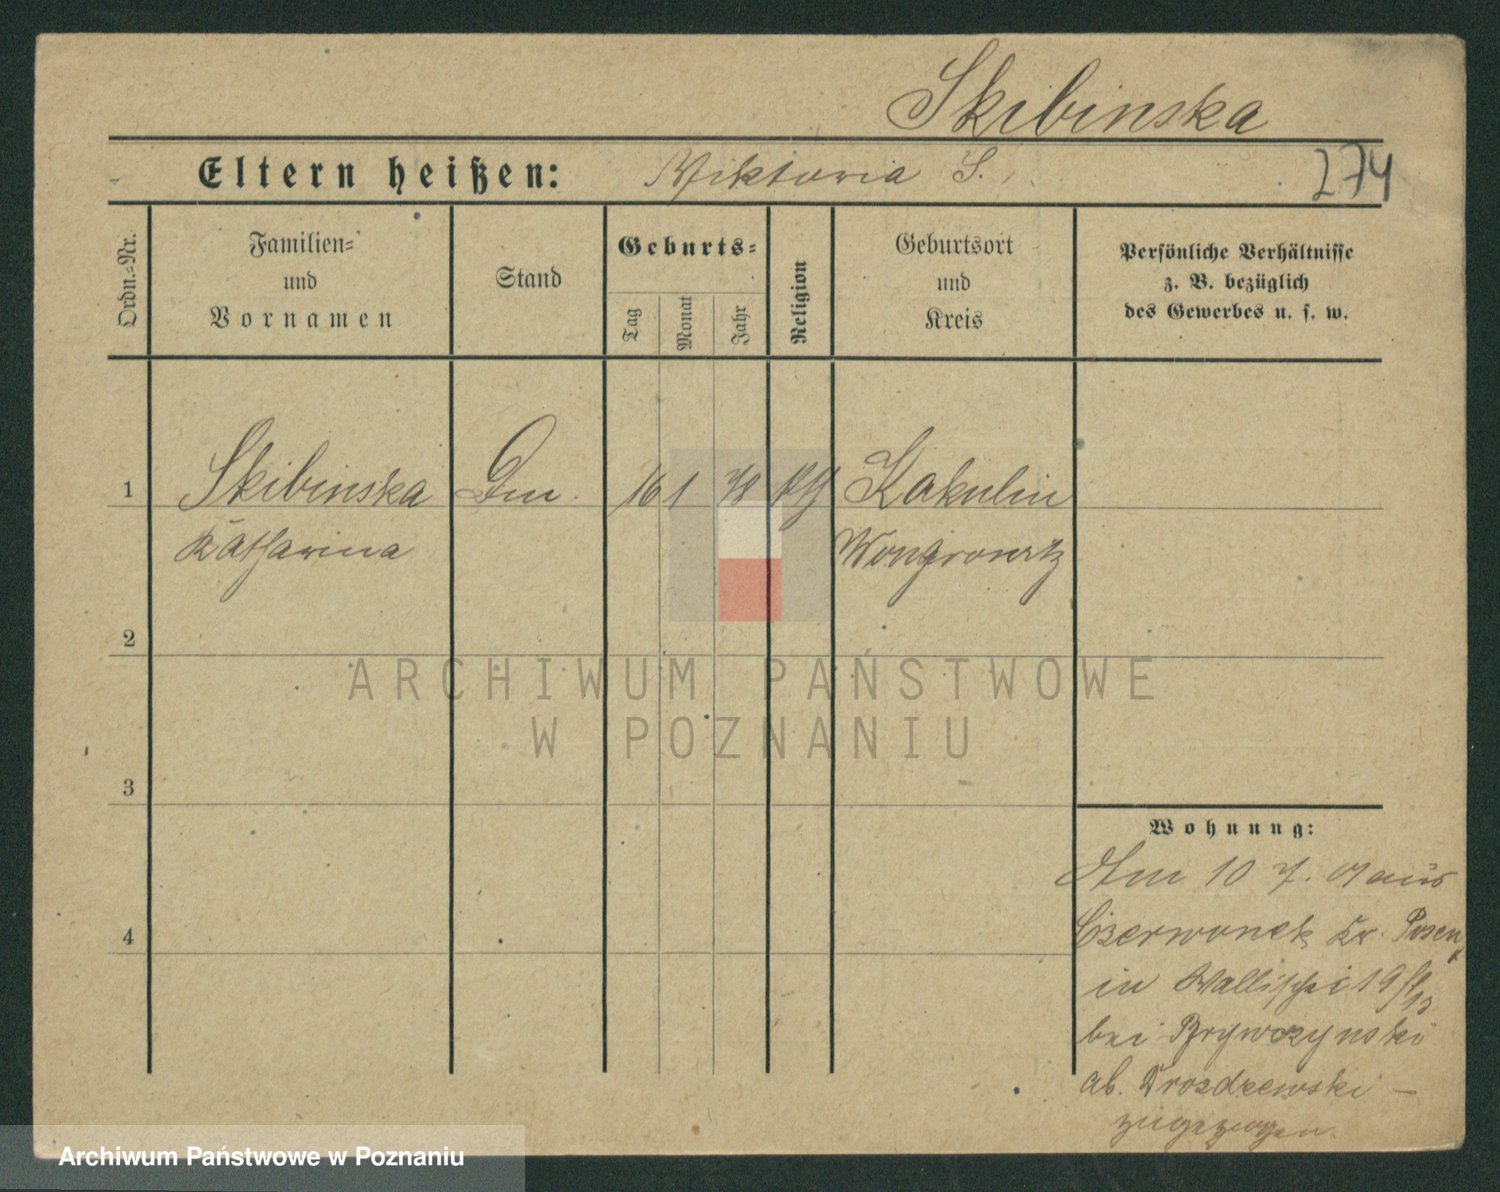 Skibinska
Eltern heißen: Viktoria S.
274
Ordn.=Nr.
Familien=
und
Vornamen
Stand
Geburts=
Tag
Monat
Jahr
Religion
Geburtsort
und
Kreis
Persönliche Verhältnisse
z. B. bezüglich
des Gewerbes u. s. w.
1 Skibinska 16 1 78 Kakulin
Katharina Wongrowitz
2
3
4
Wohnung:
Am 10 7. 07 aus
Czerwonek Kr. Posen
in Wallischei
bei
ab. Drozdzewski —
zugezogen.
ARCHIWUM PAŃSTWOWE
W POZNANIU
Archiwum Państwowe w Poznaniu